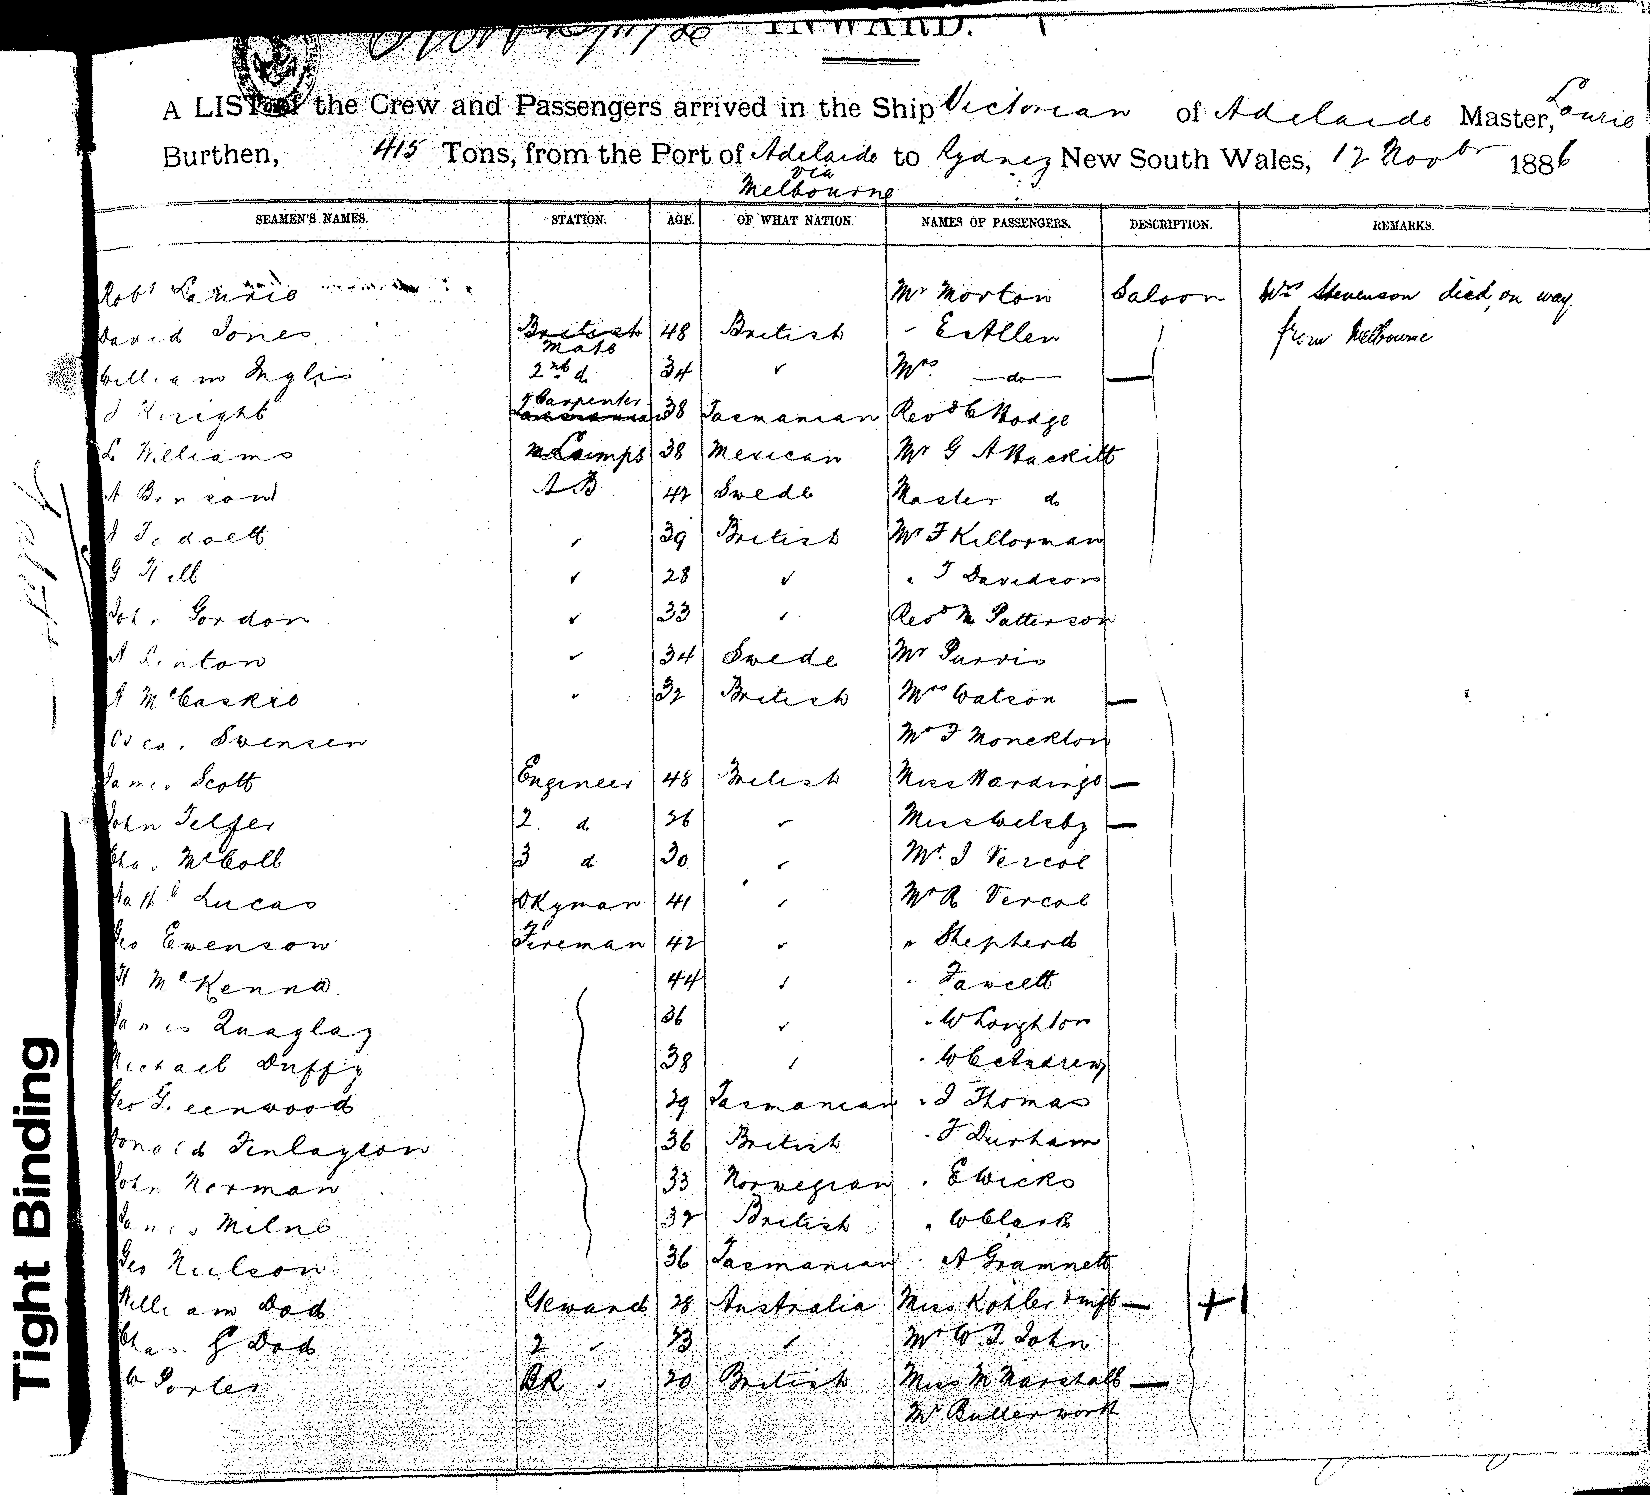 INWARD.
A LIST of the Crew and Passengers arrived in the Ship Victorian of Adelaide Master, Laurie
Burthen, 415 Tons, from the Port of Adelaide to Sydney New South Wales, 12 Novbr 1886
via
Melbourne
SEAMEN'S NAMES. STATION. AGE. OF WHAT NATION. NAMES OF PASSENGERS. DESCRIPTION. REMARKS.
Robt Laurie Mr Morton Saloon Wm Stevenson died on way
David Jones British Mate 48 British " E Allen from Melbourne
William Inglis 2nd d 34 " Mrs — do —
J Knight Carpenter 38 Tasmanian Revd C Hodge
L Williams Lamps 38 Mexican Mr G A Hackitt
A Benson AB 42 Swede Master d
" 39 British Mr F Killorman
G Hill " 28 " " T Davidson
John Gordon " 33 " Revd M Patterson
A Linton " 34 Swede Mr Purvis
A McCaskie " 32 British Mrs Watson —
Oscar Svensen Mr F Monckton
James Scott Engineer 48 British Miss Hardinge —
John Telfer 2 d 26 " Miss Welsby —
Chas McColl 3 d 30 " Mr J Vercoe
Lucas Dkyman 41 " Mr R Vercoe
Geo Evenson Fireman 42 " " Shepherd
H McKenna 44 " " Fawcett
James Quaglay 36 " " W Loughton
Michael Duffy 38 " " W C Andrew
Geo Greenwood 29 Tasmanian " J Thomas
Donald Finlayson 36 British " F Durham
John Herman 33 Norwegian " E Wicks
James Milne 32 British " W Clark
Geo Neilson 36 Tasmanian A Grannett
William Dod Steward 28 Australia Miss Kohler & inft — +
Chas G Dod 2 " 23 " Mr W T John
W Porter " 20 British Miss M Marshall —
Mr Butterwork
Tight Binding